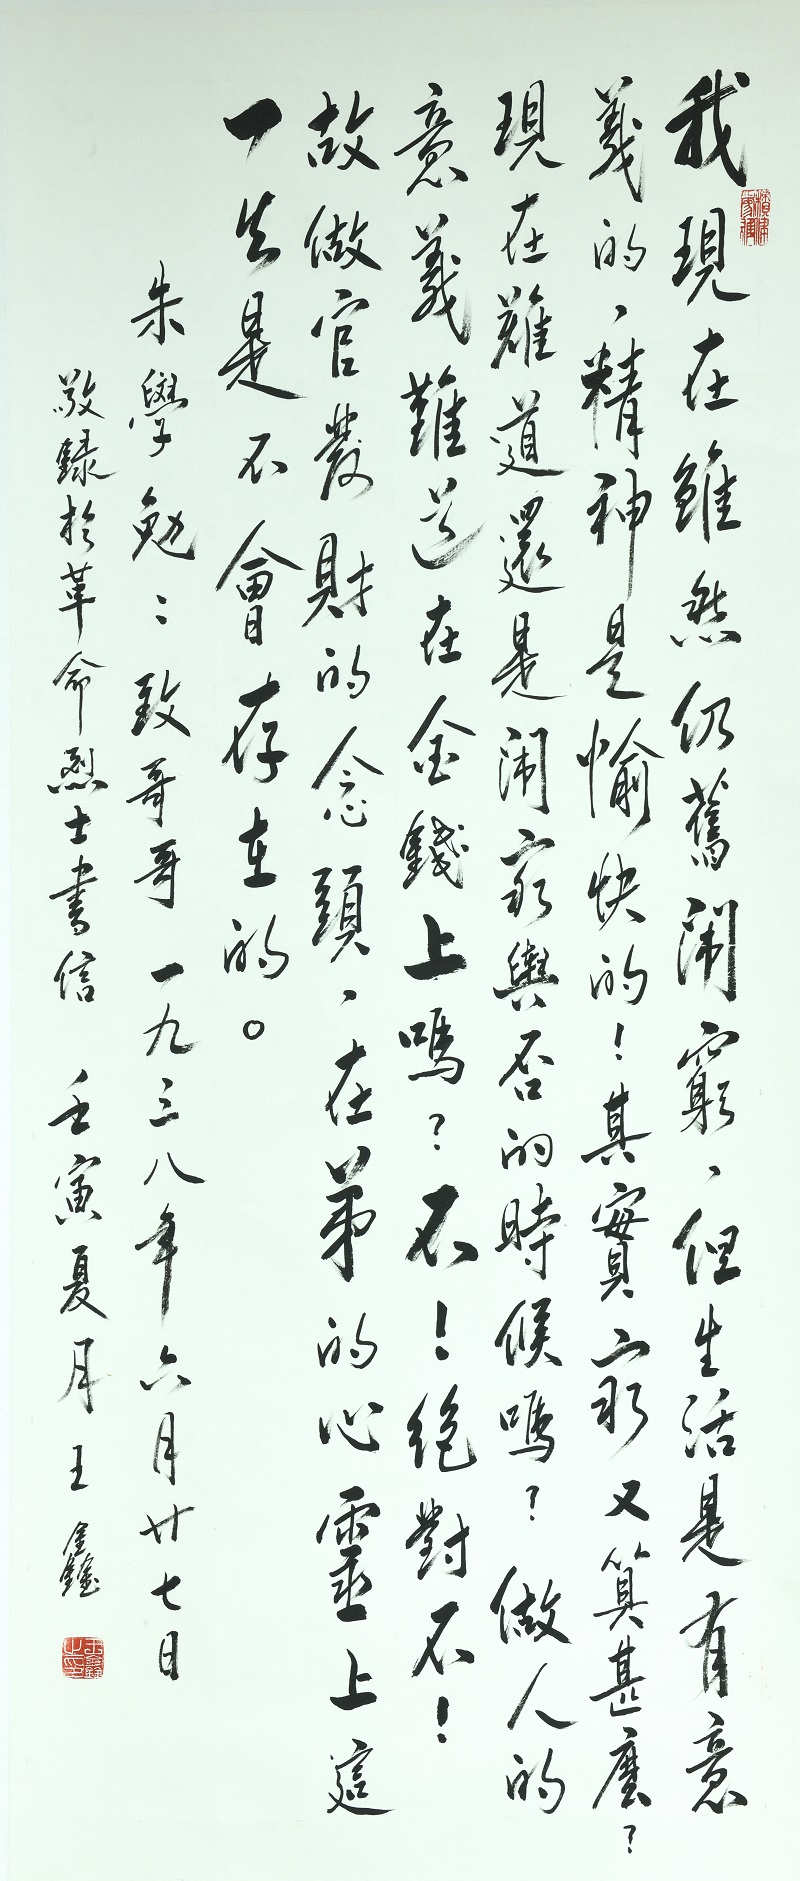 我現在雖然仍舊鬧窮、但生活是有意
義的、精神是愉快的！其實窮又算甚麼？
現在難道還是鬧窮與否的時候嗎？做人的
意義難道在金錢上嗎？不！絕對不！
故做官發財的念頭、在弟的心靈上這
一生是不會存在的。
朱學勉：致哥哥 一九三八年六月廿七日
敬錄於革命烈士書信 壬寅夏月 王鑫